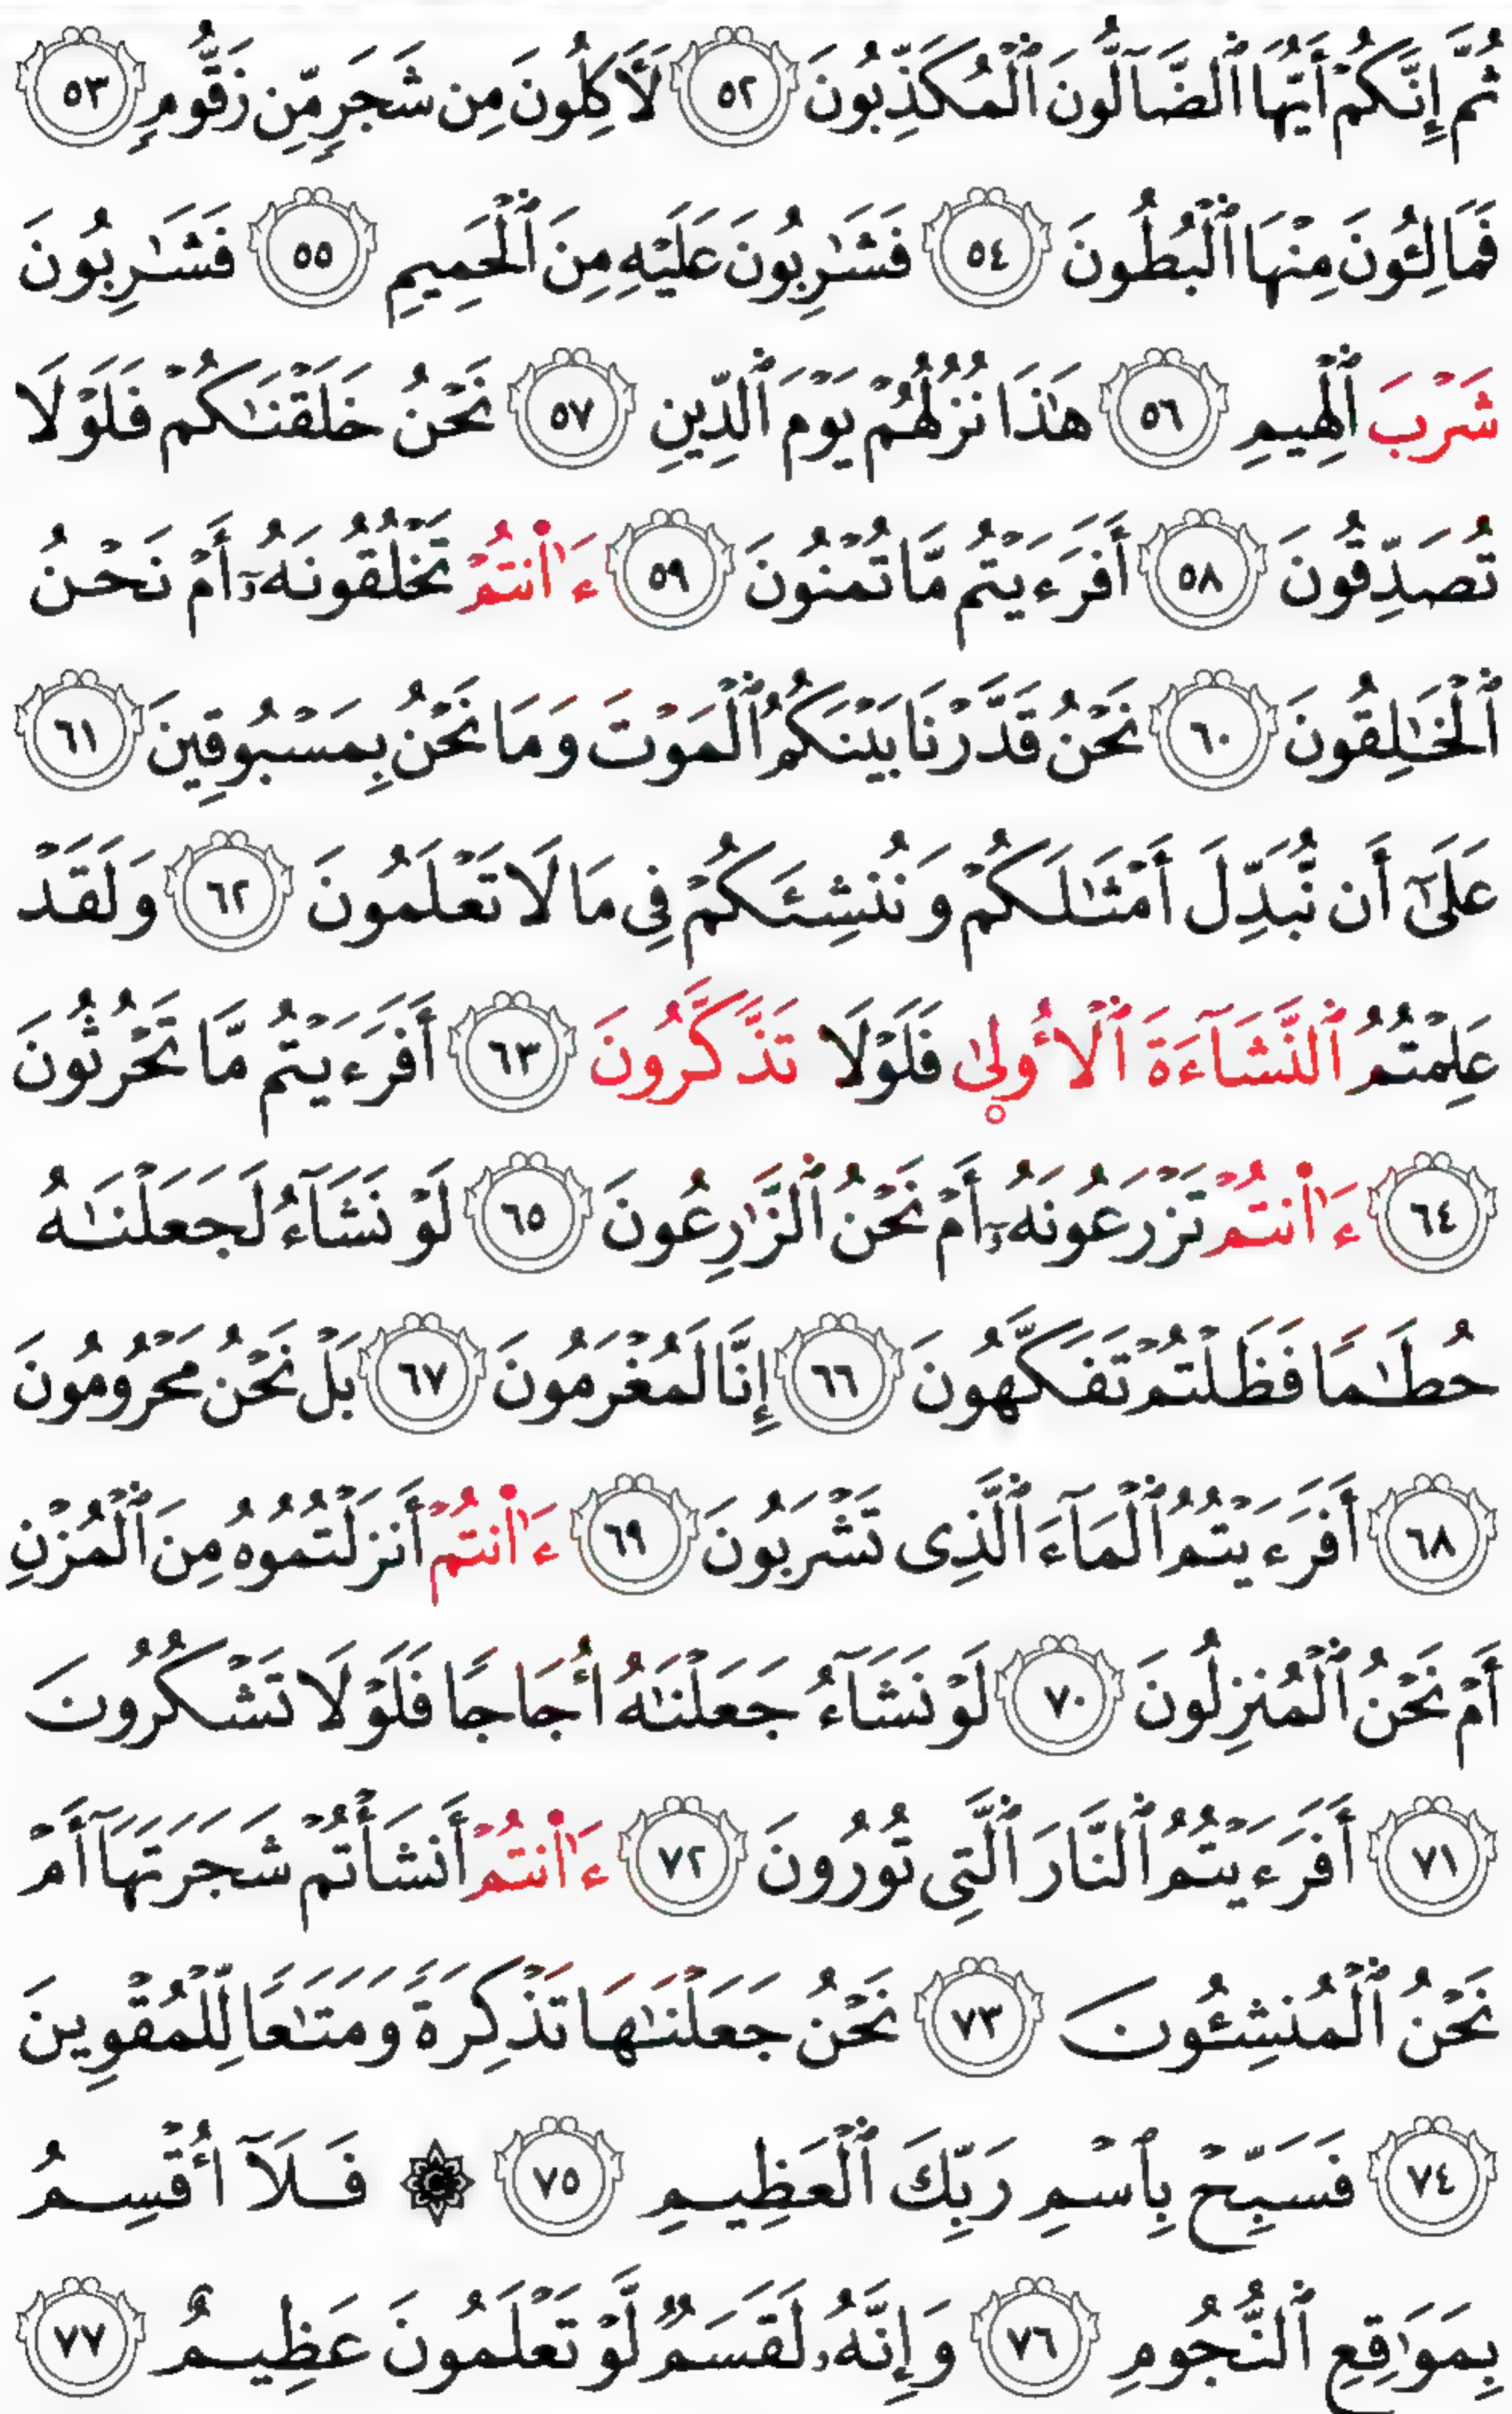 ثُمَّ إِنَّكُمْ أَيُّهَا ٱلضَّآلُّونَ ٱلْمُكَذِّبُونَ ٥٢ لَأٓكِلُونَ مِن شَجَرٍ مِّن زَقُّومٍ ٥٣
فَمَالِـُٔونَ مِنْهَا ٱلْبُطُونَ ٥٤ فَشَٰرِبُونَ عَلَيْهِ مِنَ ٱلْحَمِيمِ ٥٥ فَشَٰرِبُونَ
شَرْبَ ٱلْهِيمِ ٥٦ هَٰذَا نُزُلُهُمْ يَوْمَ ٱلدِّينِ ٥٧ نَحْنُ خَلَقْنَٰكُمْ فَلَوْلَا
تُصَدِّقُونَ ٥٨ أَفَرَءَيْتُم مَّا تُمْنُونَ ٥٩ ءَا۬نتُمْ تَخْلُقُونَهُۥٓ أَمْ نَحْنُ
ٱلْخَٰلِقُونَ ٦٠ نَحْنُ قَدَّرْنَا بَيْنَكُمُ ٱلْمَوْتَ وَمَا نَحْنُ بِمَسْبُوقِينَ ٦١
عَلَىٰٓ أَن نُّبَدِّلَ أَمْثَٰلَكُمْ وَنُنشِئَكُمْ فِى مَا لَا تَعْلَمُونَ ٦٢ وَلَقَدْ
عَلِمْتُمُ ٱلنَّشَآءَةَ ٱلْأُولٜىٰ فَلَوْلَا تَذَّكَّرُونَ ٦٣ أَفَرَءَيْتُم مَّا تَحْرُثُونَ
٦٤ ءَا۬نتُمْ تَزْرَعُونَهُۥٓ أَمْ نَحْنُ ٱلزَّٰرِعُونَ ٦٥ لَوْ نَشَآءُ لَجَعَلْنَٰهُ
حُطَٰمًا فَظَلْتُمْ تَفَكَّهُونَ ٦٦ إِنَّا لَمُغْرَمُونَ ٦٧ بَلْ نَحْنُ مَحْرُومُونَ
٦٨ أَفَرَءَيْتُمُ ٱلْمَآءَ ٱلَّذِى تَشْرَبُونَ ٦٩ ءَا۬نتُمْ أَنزَلْتُمُوهُ مِنَ ٱلْمُزْنِ
أَمْ نَحْنُ ٱلْمُنزِلُونَ ٧٠ لَوْ نَشَآءُ جَعَلْنَٰهُ أُجَاجًا فَلَوْلَا تَشْكُرُونَ
٧١ أَفَرَءَيْتُمُ ٱلنَّارَ ٱلَّتِى تُورُونَ ٧٢ ءَا۬نتُمْ أَنشَأْتُمْ شَجَرَتَهَآ أَمْ
نَحْنُ ٱلْمُنشِـُٔونَ ٧٣ نَحْنُ جَعَلْنَٰهَا تَذْكِرَةً وَمَتَٰعًا لِّلْمُقْوِينَ
٧٤ فَسَبِّحْ بِٱسْمِ رَبِّكَ ٱلْعَظِيمِ ٧٥ ۞ فَلَآ أُقْسِمُ
بِمَوَٰقِعِ ٱلنُّجُومِ ٧٦ وَإِنَّهُۥ لَقَسَمٌ لَّوْ تَعْلَمُونَ عَظِيمٌ ٧٧